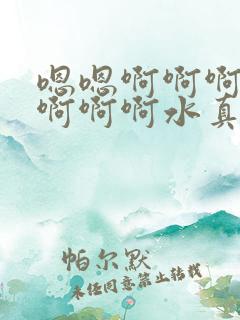 嗯嗯啊啊啊
啊啊啊水真
帕尔默
未经同意禁止转载